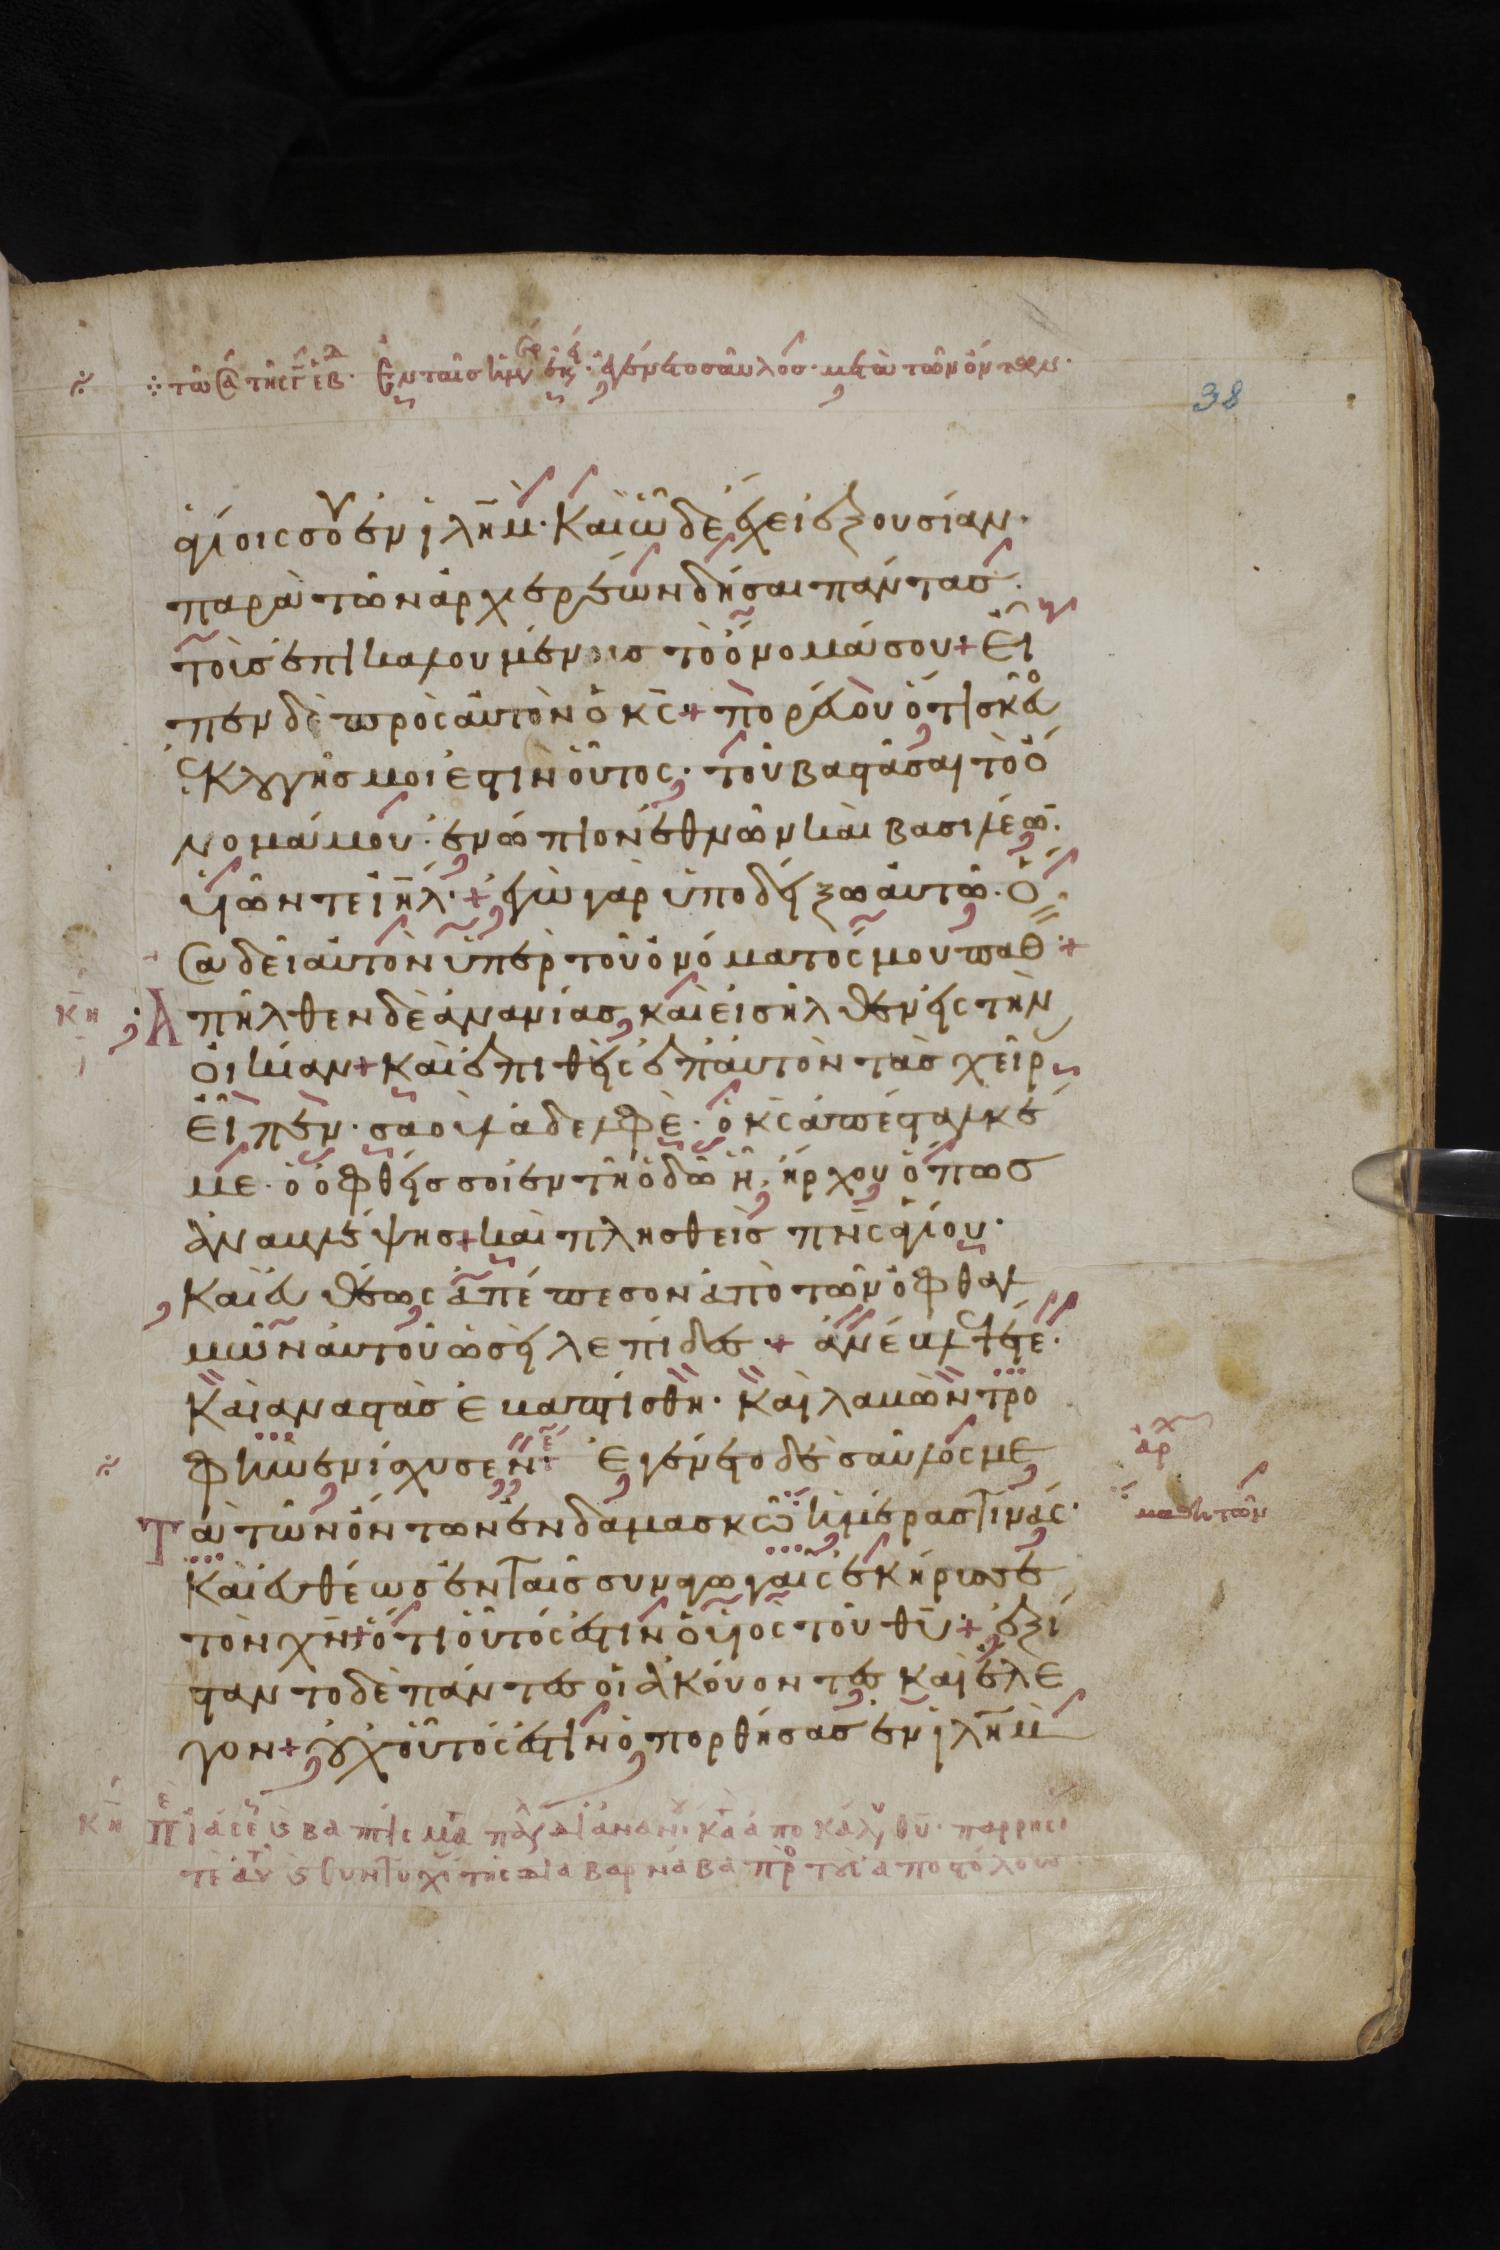 τῶ σα τῆς ἑβ. Ἐν ταῖς ἡμ ἐκ. ἐγένετο σαῦλος. μετὰ τῶν ὄντων.
38
ἁγίοις σου ἐν ἰλῆμ. Καὶ ὧδε ἔχει ἐξουσίαν.
παρὰ τῶν ἀρχιερέων δῆσαι πάντας.
τοὺς ἐπικαλουμένους τὸ ὄνομά σου + Εἶ
πεν δὲ πρὸς αὐτὸν ὁ κς + πορεύου ὅτι σκεῦ
ος ἐκλογῆς μοι ἐστὶν οὗτος. τοῦ βαστάσαι τὸ ὄ
νομά μου. ἐνώπιον ἐθνῶν καὶ βασιλέων.
υἱῶν τε ἰηλ. + ἐγὼ γὰρ ὑποδείξω αὐτῶ. ὅ
σα δεῖ αὐτὸν ὑπὲρ τοῦ ὀνόματός μου παθ +
κη Ἀπῆλθεν δὲ ἀνανίας καὶ εἰσῆλθεν εἰς τὴν
οἰκίαν + καὶ ἐπιθεὶς ἐπ' αὐτὸν τὰς χεῖρ
εἶπεν. σαοὺλ ἀδελφὲ. ὁ κς ἀπέσταλκέ
με. ὁ ὀφθείς σοι ἐν τῆ ὁδῶ ἧ ἤρχου ὅπως
ἀναβλέψης + καὶ πλησθεῖς πνς ἁγίου.
Καὶ εὐθέως ἀπέπεσον ἀπὸ τῶν ὀφθαλ
μῶν αὐτοῦ ὡσεὶ λεπίδες. + ἀνέβλεψέ τε.
Καὶ ἀναστὰς ἐβαπτίσθη. Καὶ λαβὼν τρο
φὴν ἐνίσχυσεν. Ἐγένετο δὲ σαῦλος με
τὰ τῶν ὄντων ἐν δαμασκῶ ἡμέρας τινάς.
ἀρχ
μαθητῶν
Καὶ εὐθέως ἐν ταῖς συναγωγαῖς ἐκήρυσσε
τὸν χν + ὅτι οὗτός ἐστιν ὁ υἱὸς τοῦ θυ + ἐξί
σταντο δὲ πάντες οἱ ἀκούοντες καὶ ἔλε
γον + οὐχ οὗτός ἐστιν ὁ πορθήσας ἐν ἰλῆμ
κη